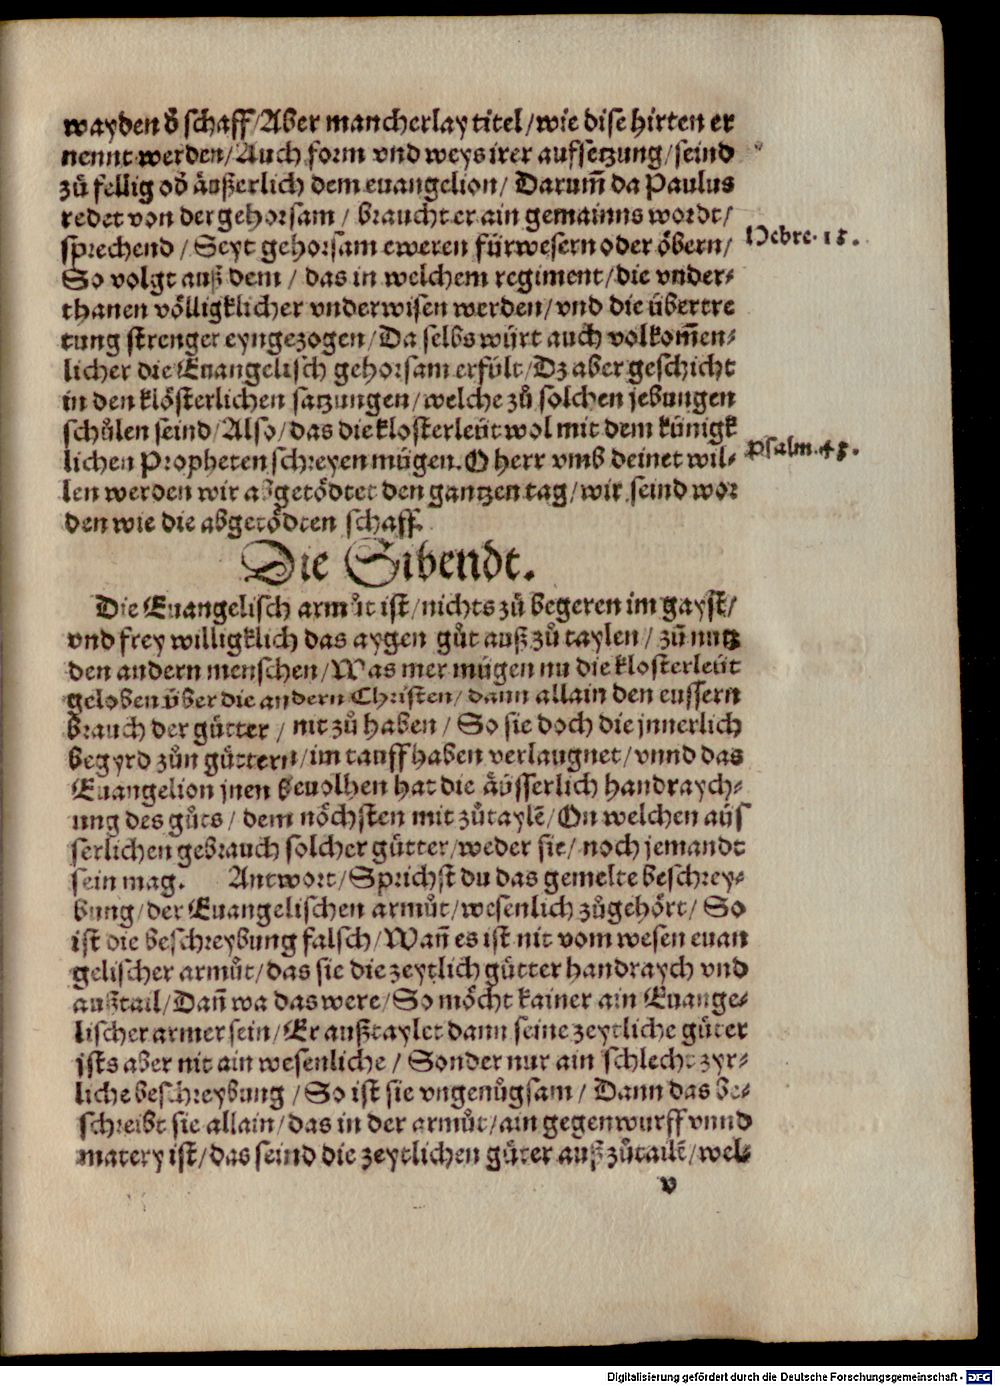 wayden d̄ schaff/Aber mancherlay titel/wie dise hirten er
nennt werden/Auch form vnd weys irer aufsetzung/seind
zů fellig ob äußerlich dem euangelion/ Darum̃ da Paulus
redet von der gehorsam/ braucht er ain gemainns wordt/
sprechend/ Seyt gehorsam eweren fürwesern oder öbern/
Hebre. 13.
So volgt auß dem/ das in welchem regiment/die vnder-
thanen völligklicher vnderwisen werden/vnd die übertre
tung strenger eyngezogen/Da selbs würt auch volkom̃en-
licher die Euangelisch gehorsam erfült/Dz aber geschicht
in den klösterlichen satzungen/welche zů solchen jebungen
schůlen seind/Also/das die klosterleüt wol mit dem künigk
lichen Propheten schreyen mügen. O herr vmb deinet wil-
Psalm. 43.
len werden wir abgetödtet den gantzen tag/wir seind wor
den wie die abgetödten schaff.
Die Sibendt.
Die Euangelisch armůt ist/nichts zů begeren im gayst/
vnd frey willigklich das aygen gůt auß zů taylen/ zů nutz
den andern menschen/Was mer mügen nu die klosterleüt
geloben über die andern Christen/ dann allain den eussern
brauch der gütter/ nit zů haben/ So sie doch die jnnerlich
begyrd zůn güttern/im tauff haben verlaugnet/vnnd das
Euangelion jnen beuolhen hat die äüsserlich handraych-
ung des gůts/ dem nöchsten mit zůtaylẽ/On welchen aüs
serlichen gebrauch solcher gütter/weder sie/ noch jemandt
sein mag. Antwort/Sprichst du das gemelte beschrey-
bung/der Euangelischen armůt/wesenlich zůgehört/ So
ist die beschreybung falsch/Wañ es ist nit vom wesen euan
gelischer armůt/das sie die zeytlich gütter handraych vnd
außtail/Dañ wa das were/So möcht kainer ain Euange-
lischer armer sein/Er außtaylet dann seine zeytliche güter
ists aber nit ain wesenliche/ Sonder nur ain schlecht zyr-
liche beschreybung/So ist sie vngenůgsam/ Dann das be-
schreibt sie allain/das in der armůt/ain gegenwurff vnnd
matery ist/das seind die zeytlichen güter auß zůtailẽ/wel-
v
Digitalisierung gefördert durch die Deutsche Forschungsgemeinschaft - DFG